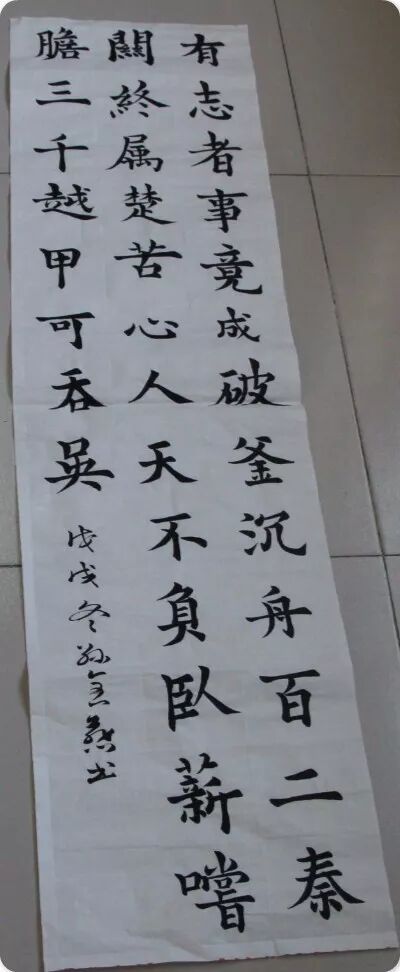 有志者事竟成破釜沉舟百二秦
關終属楚苦心人天不負臥薪嚐
膽三千越甲可吞吳
戊戌冬孫金燕书